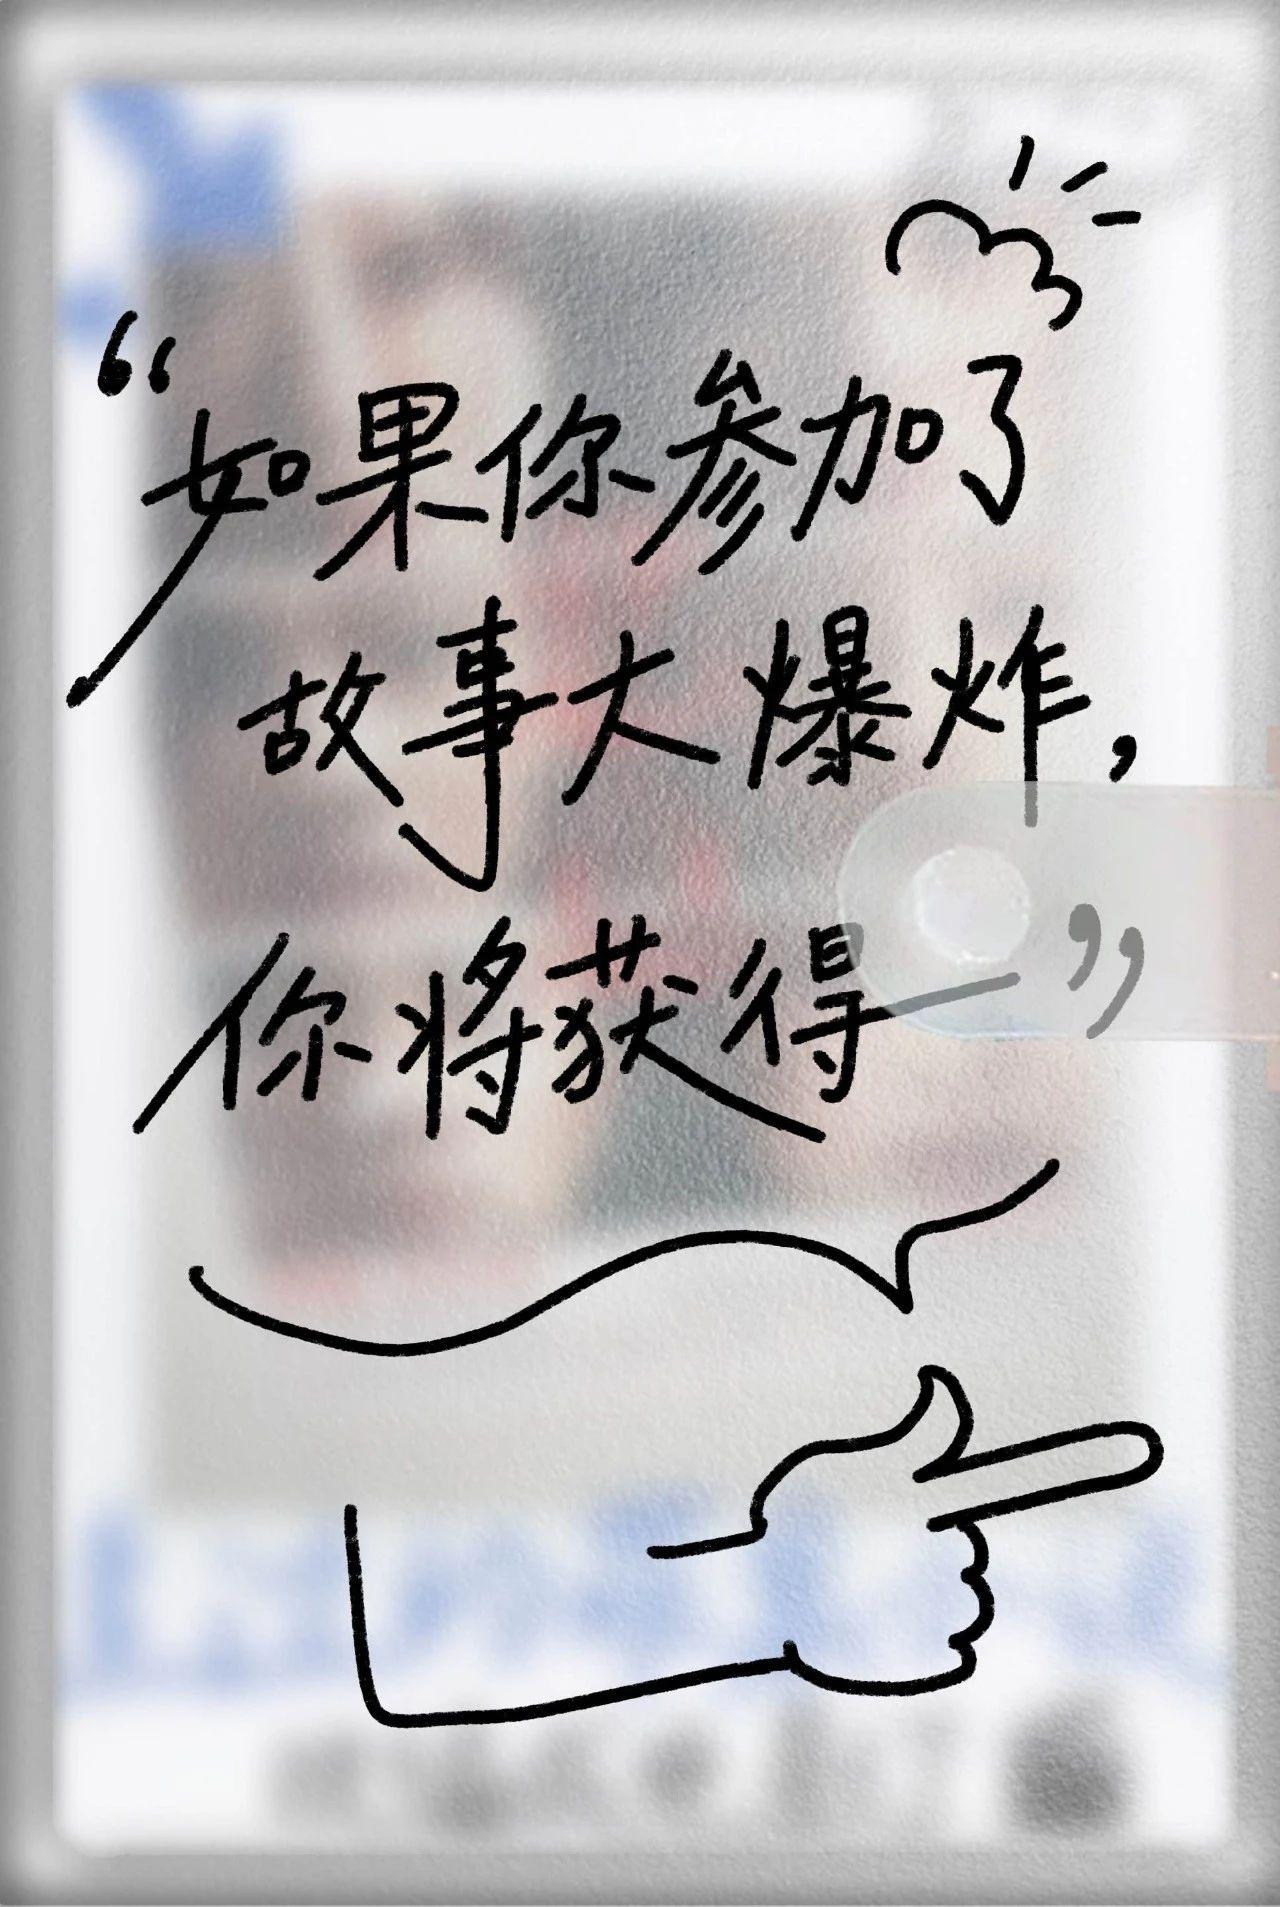 “如果你参加了
故事大爆炸，
你将获得—”